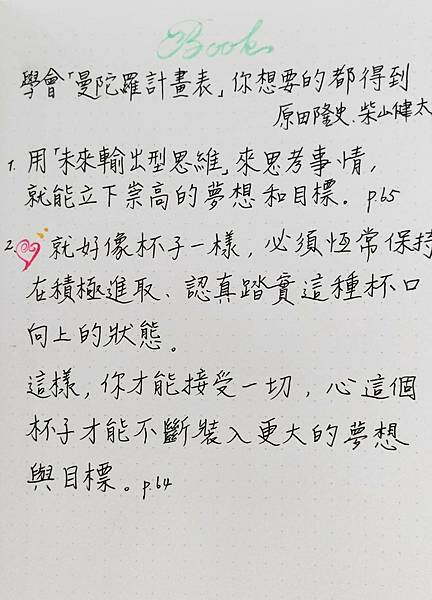 Book
學會「曼陀羅計畫表」你想要的都得到
原田隆史、柴山健太
1. 用「未來輸出型思維」來思考事情,
就能立下崇高的夢想和目標。p.65
2. 就好像杯子一樣,必須恆常保持
在積極進取、認真踏實這種杯口
向上的狀態。
這樣,你才能接受一切,心這個
杯子才能不斷裝入更大的夢想
與目標。p.64